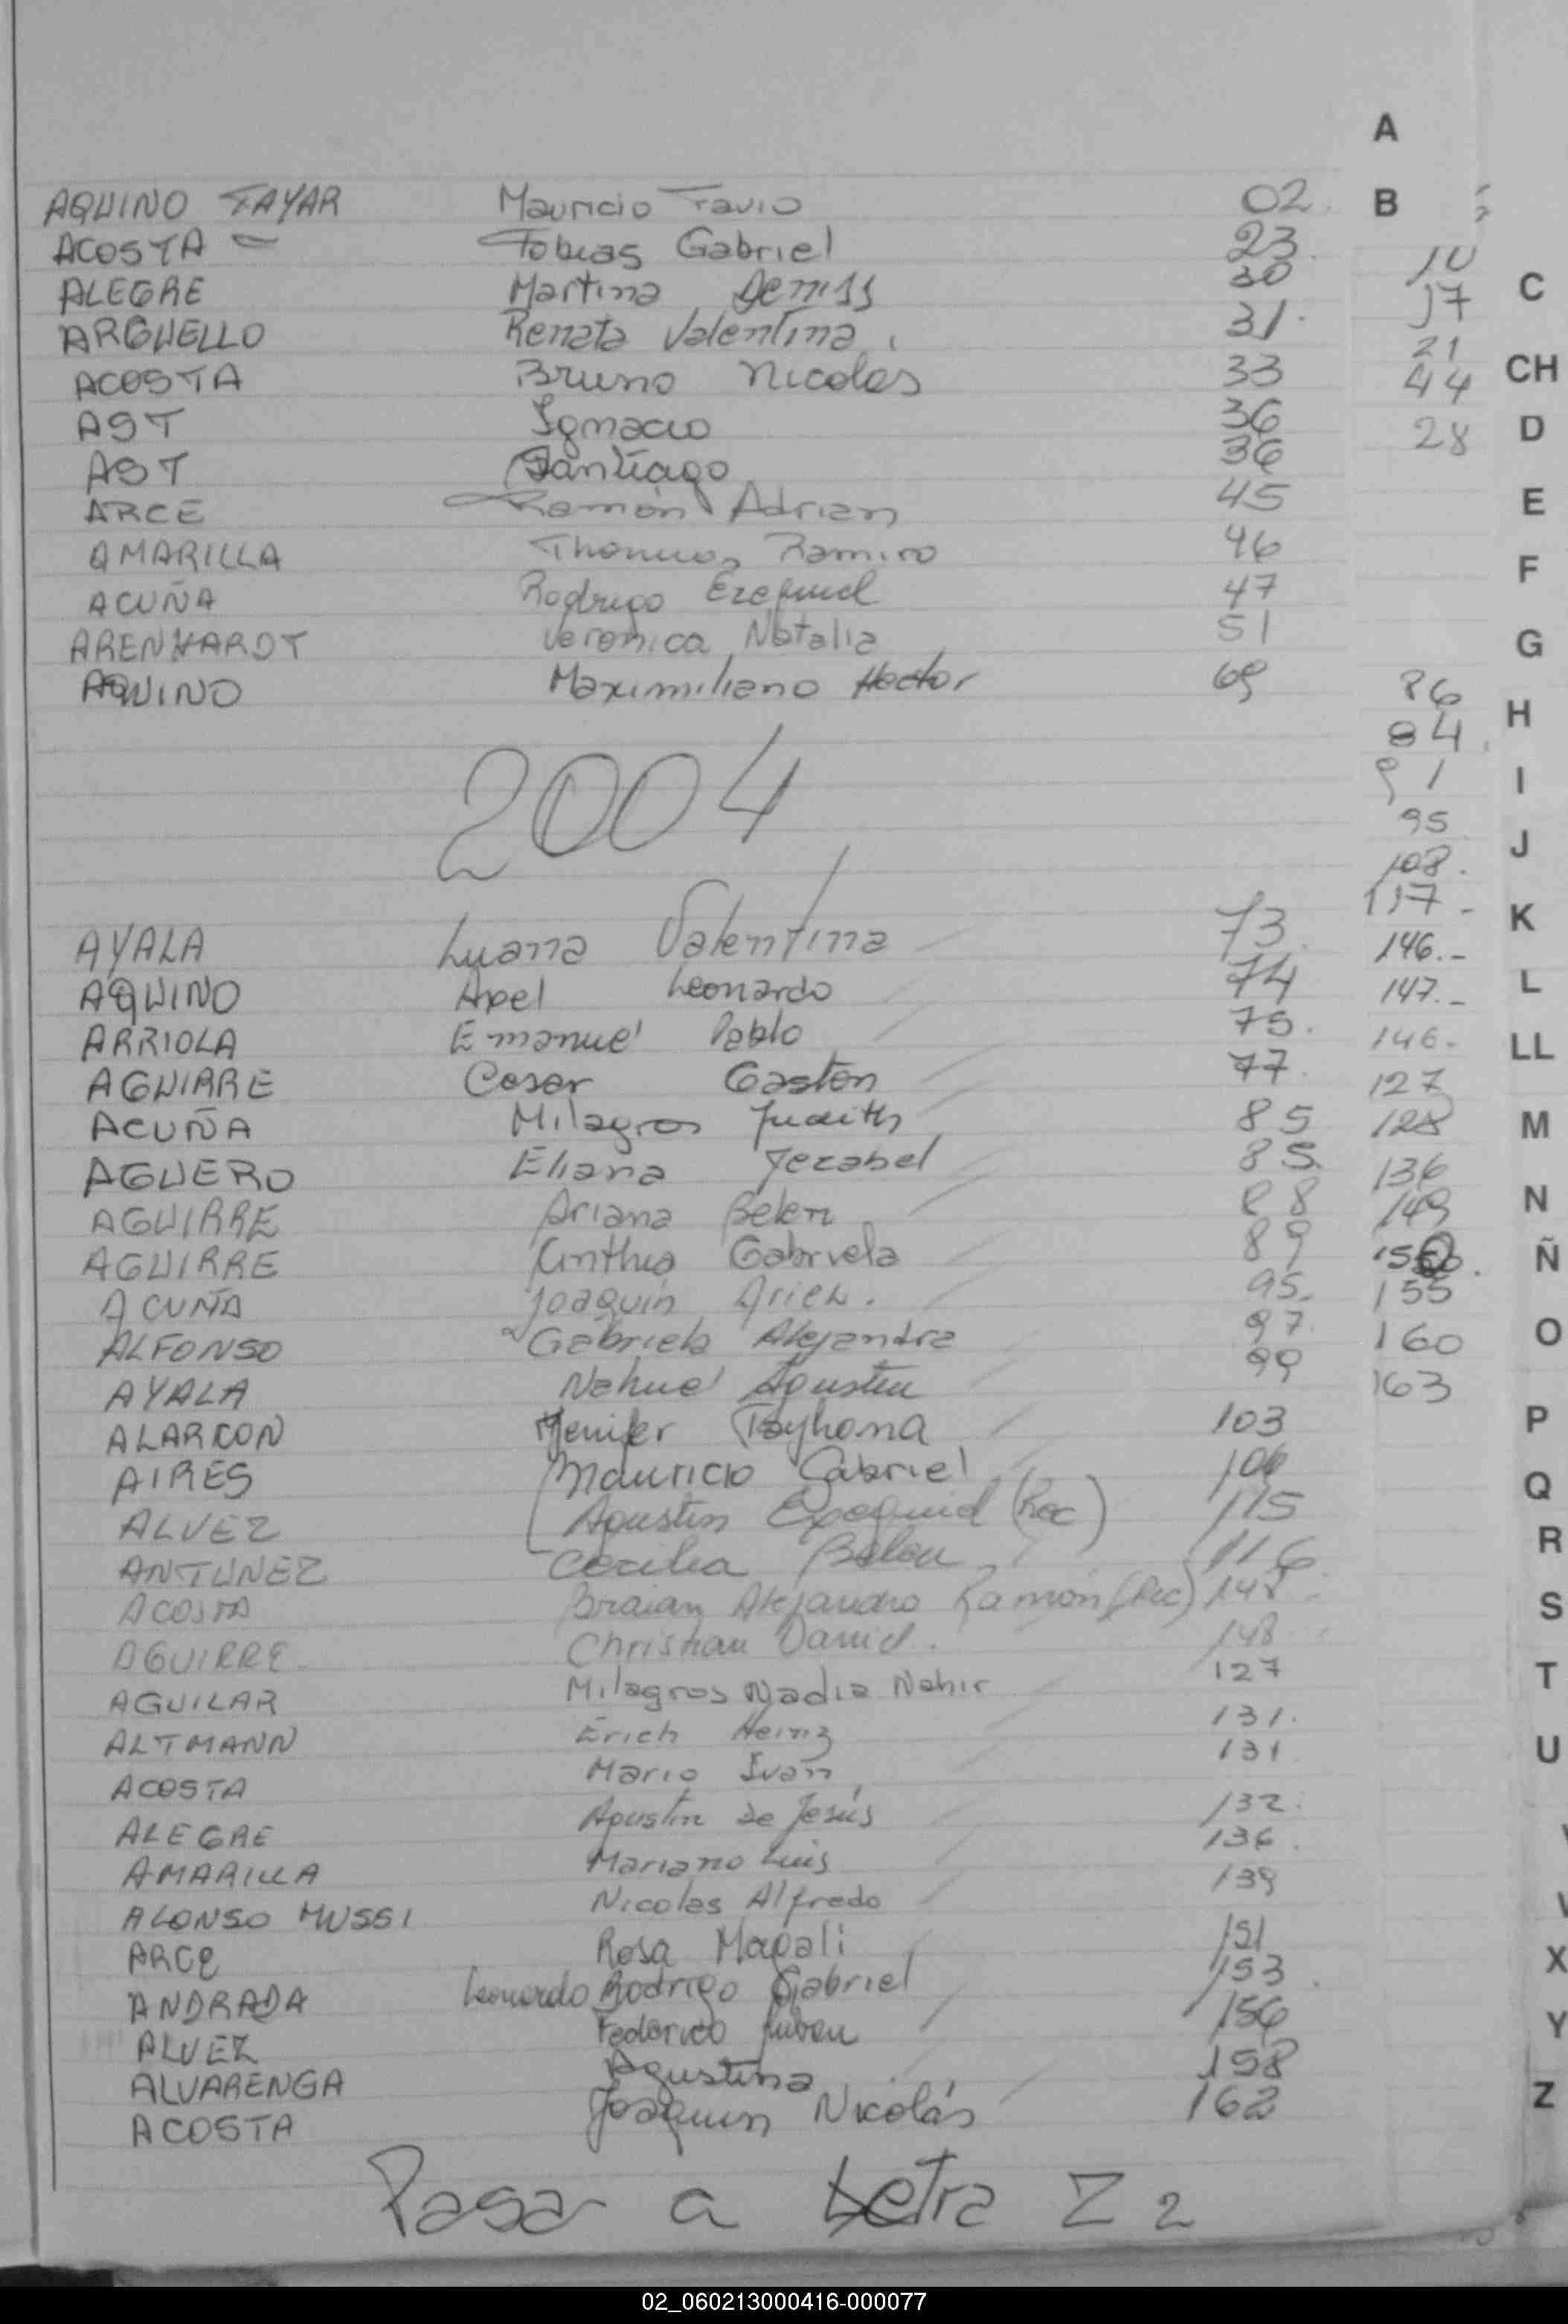 A
AQUINO TAYAR Mauricio Favio 02. B
ACOSTA Tobias Gabriel 23. 10
ALEGRE Martina Deniss 30 17 C
ARGUELLO Renata Valentina 31. 21
ACOSTA Bruno Nicolas 33 44 CH
AST Ignacio 36 28 D
AST Santiago 36
ARCE Ramón Adrian 45 E
AMARILLA Thomas Ramiro 46
ACUÑA Rodrigo Ezequiel 47 F
ARENHARDT Veronica Natalia 51 G
AQUINO Maximiliano Hector 69
H
84
2004 91 I
95
108. J
117 - K
AYALA Luana Valentina 73. 146.-
AQUINO Axel Leonardo 74 147.- L
ARRIOLA Emanuel Pablo 75. 146. LL
AGUIRRE Cesar Gaston 77. 127
ACUÑA Milagros Judith 85 128 M
AGUERO Eliana Jezabel 85. 136
AGUIRRE Ariana Belen 88 149 N
AGUIRRE Cinthia Gabriela 89 Ñ
ACUÑA Joaquin Ariel. 95. 155
ALFONSO Gabriela Alejandra 97. 160 O
AYALA Nahuel Agustin 99 163
ALARCON Yenifer Tayhana 103 P
AIRES Mauricio Gabriel 106 Q
ALVEZ Agustin Exequiel (Rec) 115
ANTUNEZ Cecilia Belen 116 R
ACOSTA Braian Alejandro Ramón (Rec) 148 S
AGUIRRE Christian Daniel. 148
AGUILAR Milagros Nadia Nahir 127 T
ALTMANN Erich Heinz 131.
ACOSTA Mario Ivan 131 U
ALEGRE Agustin de Jesús 132.
AMARILLA Mariano Luis 136.
ALONSO MUSSI Nicolas Alfredo 139
ARCE Rosa Magali 151 X
ANDRADA Leonardo Rodrigo Gabriel 153
ALVEZ Federico Ruben 156 Y
ALVARENGA Agustina 158
ACOSTA Joaquin Nicolás 162 Z
Pasa a Letra Z 2
02_060213000416-000077